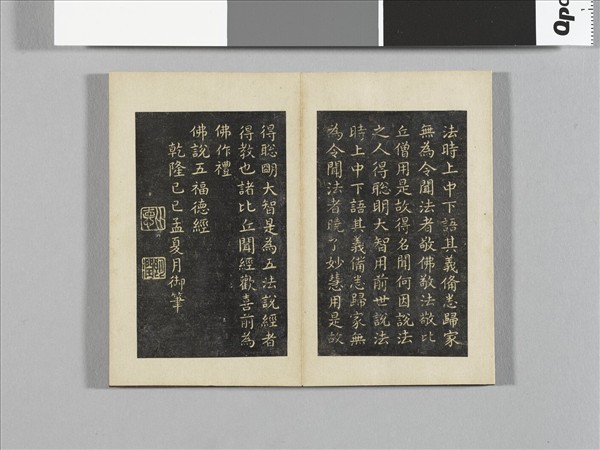 法時上中下語其義備悉歸家
無為令聞法者敬佛敬法敬比
丘僧用是故得名聞何因說法
之人得聰明大智用前世說法
時上中下語其義備悉歸家無
為令聞法者曉了妙慧用是故
得聰明大智是為五法說經者
得教也諸比丘聞經歡喜前為
佛作禮
佛說五福德經
乾隆己巳孟夏月御筆